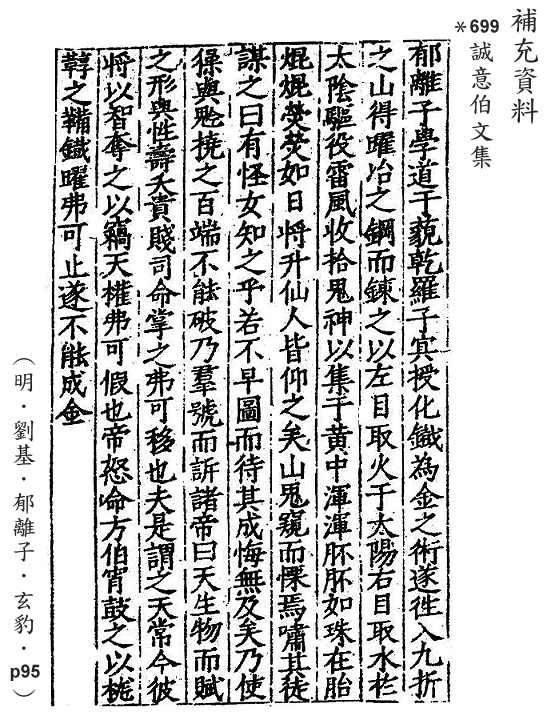 補充資料
*699 誠意伯文集
郁離子學道于藐乾羅子冥授化鐵為金之術遂徃入九折
之山得躍冶之鋼而鍊之以左目取火于太陽右目取水於
太陰驅役雷風收拾鬼神以集于黃中渾渾肧肧如珠在胎
焜焜熒熒如日將升仙人皆仰之矣山鬼窺而慄焉嘯其徒
謀之曰有怪女知之乎若不早圖而待其成悔無及矣乃使
與撓之百端不能破乃羣號而訴諸帝曰天生物而賦
之形與性壽夭貴賤司命掌之弗可移也夫是謂之天常今彼
將以智奪之以竊天權弗可假也帝怒命方伯宵鼓之以
之鞴鐵躍弗可止遂不能成金
（明．劉基．郁離子．玄豹．p95）